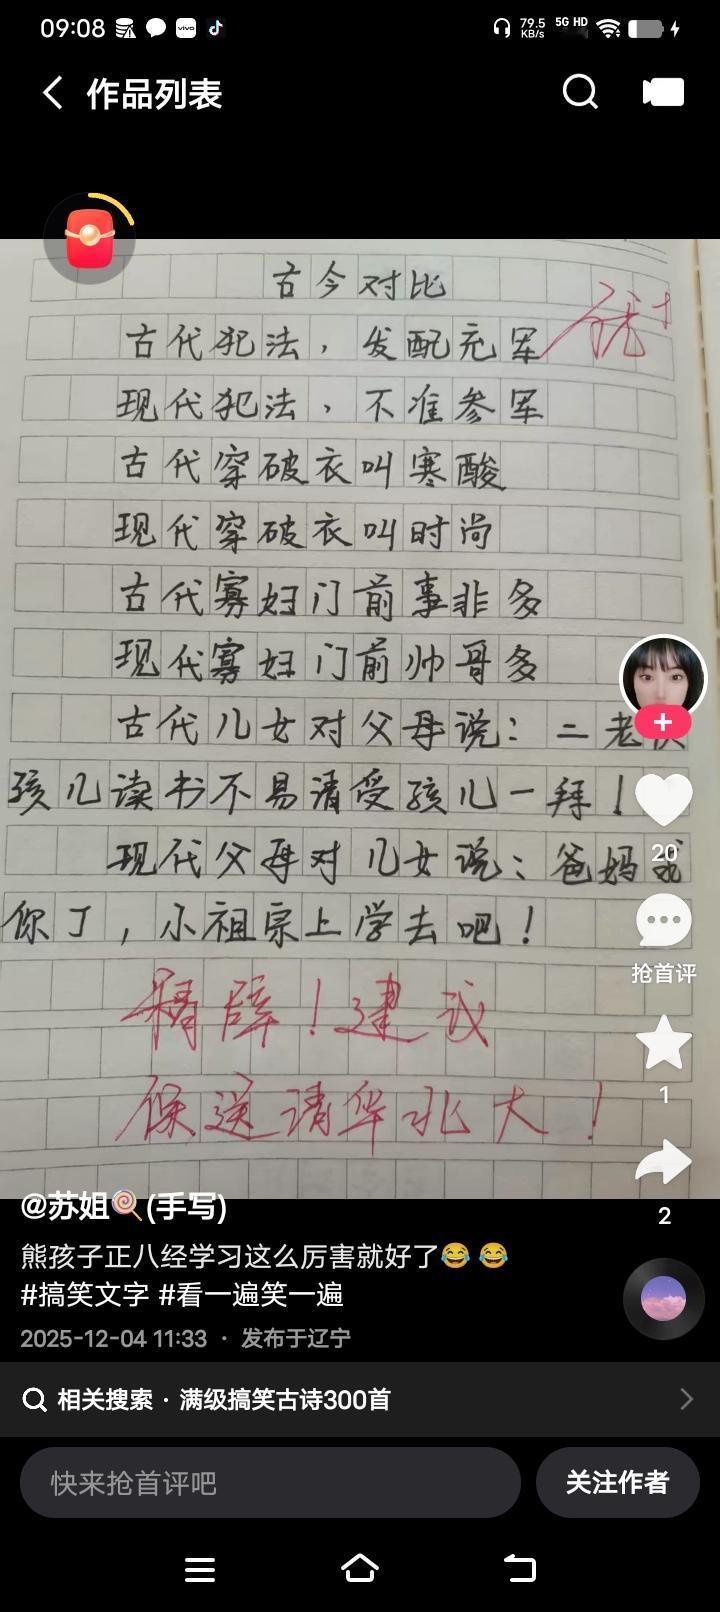 09:08
vivo
79.5
KB/s
5G HD
作品列表
古今对比
优+
古代犯法，发配充军
现代犯法，不准参军
古代穿破衣叫寒酸
现代穿破衣叫时尚
古代寡妇门前事非多
现代寡妇门前帅哥多
古代儿女对父母说：二老
孩儿读书不易请受孩儿一拜！
现代父母对儿女说：爸妈求
你了，小祖宗上学去吧！
精辟！建议
保送请华北大！
20
抢首评
1
2
@苏姐🍭(手写)
熊孩子正八经学习这么厉害就好了😂 😂
#搞笑文字 #看一遍笑一遍
2025-12-04 11:33 · 发布于辽宁
相关搜索 · 满级搞笑古诗300首
快来抢首评吧
关注作者